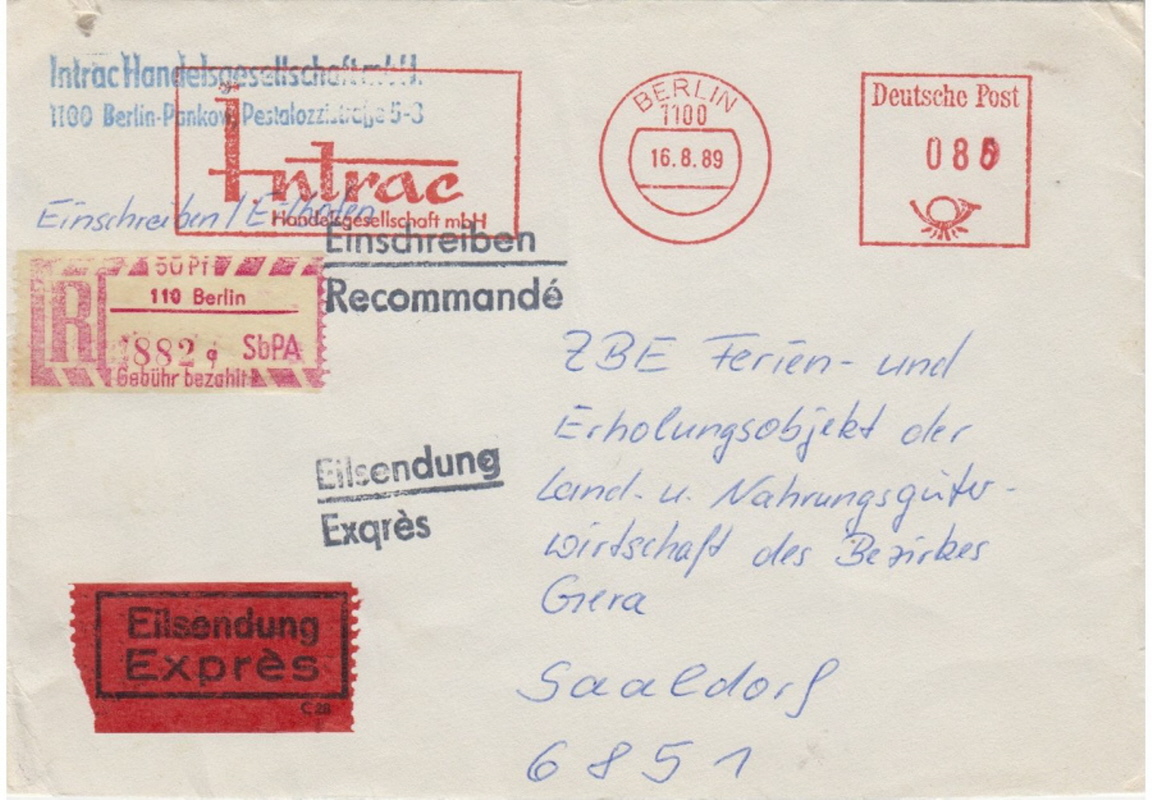 Intrac Handelsgesellschaft mbH.
1100 Berlin-Pankow, Pestalozzistraße 5-8
Intrac
Handelsgesellschaft mbH
BERLIN
1100
16.8.89
Deutsche Post
080
Einschreiben / Eilboten
Einschreiben
Recommandé
50 Pf
R
110 Berlin
882 q SbPA
Gebühr bezahlt
ZBE Ferien- und
Erholungsobjekt der
Land- u. Nahrungsgüter-
wirtschaft des Bezirkes
Gera
Saaldorf
6851
Eilsendung
Exqrès
Eilsendung
Exprès
C 28